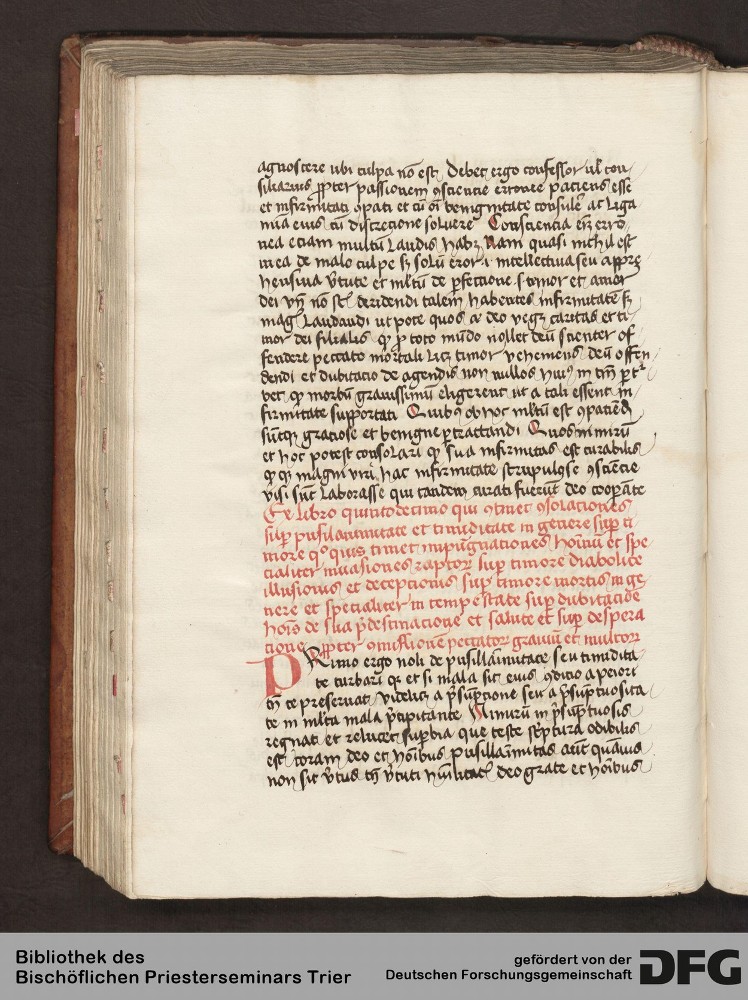 agnoscere ubi culpa nō est Debet ergo confessor ul̄ con
siliarius ꝓpter passionem ꝯsciencie erronee paciens esse
et infirmitati ꝯpati et cū oī benignitate consule ac liga
mīa eius cū discrecione soluere Consciencia eī erro
nea eciam multū laudis habꝫ Nam quasi nichil est
in ea de malo culpe sꝫ solū error intellectiua seu appre
hensiua v̄tute et mltū de ꝑfectione s. timor et amor
dei vn̄ nō st̄ deridendi talem habentes infirmitatē sꝫ
maḡ laudandi ut pote quos a deo vegꝫ caritas et ti
mor dei filialis qꝫ ꝓ toto mūdo nollet deū scienter of
fendere peccato mortali licꝫ timor vehemens deū offen
dendi et dubitacio de agendis non nullos in tm̄
vet qꝫ morbū grauissimū eligerent ut a tali essent in
firmitate supportati Quibꝰ ob hoc mltū est ꝯpaciēdū
sūtqꝫ graciose et benigne ꝑtractandi Quos nimirū
et hoc potest consolari qꝫ sua infirmitas est curabilis
qꝫ magni viri hac infirmitate scrupulose ꝯsciēcie
visi sūt laborasse qui tandem curati fuerūt deo cooꝑāte
Ex libro quintodecimo qui ꝯtinet ꝯsolaciones
suꝑ pusilanimitate et timiditate in genere suꝑ ti
more qͦ quis timet impūgnaciones hoīnū et spe
cialiter inuasiones raptoꝝ suꝑ timore diabolice
illusionis et decepcionis suꝑ timore mortis in ge
nere et specialiter in tempestate suꝑ dubitacioē
hoīs de sua p̄destinacione et salute et suꝑ despera
cione ꝓpter ꝯmissionē peccatoꝝ grauiū et multoꝝ
PRimo ergo noli de pusillaīmitate seu timidita
te turbari qꝛ et si mala sit eius ꝯdicio a peiori
tn̄ te preseruat videlicꝫ a p̄sūpcione seu a p̄sūptuosita
te in mlta mala p̄cipitante Nimirū in p̄sūptuosis
regnat et relucet suꝑbia que teste sc̄ptura odibilis
est coram deo et hoībus pusillaīmitas aūt quāuis
non sit v̄tus tn̄ v̄tuti hūilitatꝭ deo grate et hoībus
Bibliothek des
Bischöflichen Priesterseminars Trier
gefördert von der
Deutschen Forschungsgemeinschaft DFG